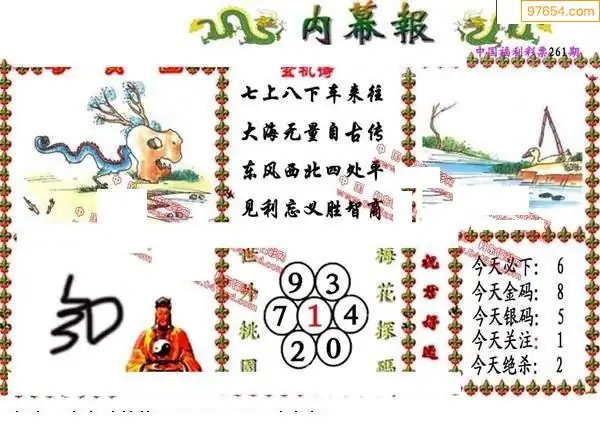 97654.com
内幕報
中国福利彩票261期
玄机诗
七上八下车来往
大海无量自古传
东风西北四处牟
见利忘义胜智商
世外桃園
9 3
7 1 4
2 0
梅花探码
祝君好运
今天必下: 6
今天金码: 8
今天银码: 5
今天关注: 1
今天绝杀: 2